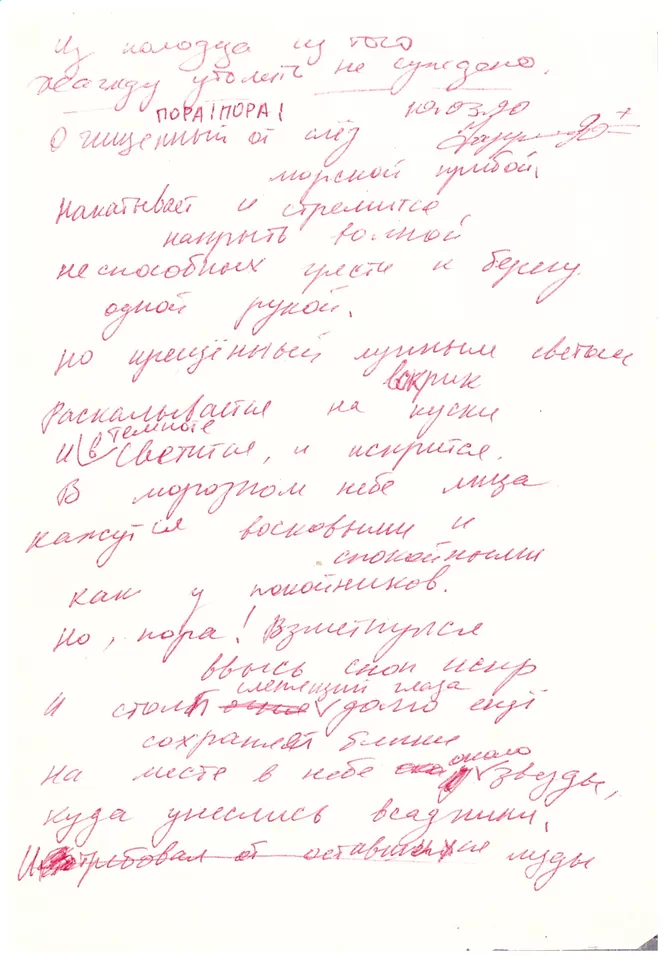 Из колодца из того
жажду утолить не суждено.
ПОРА! ПОРА!
10.03.90
Очищенный от слёз
морской прибой,
Накатывает и стремится
накрыть волной
неспособных грести к берегу
одной рукой.
Но крещённый лунным светом
вскрик
Раскалывается на куски
И в темноте светится, и искрится.
В морозном небе лица
кажутся восковыми и
спокойными
как у покойников.
Но, пора! Взметнулся
ввысь сноп искр
И столп слепящий глаза долго ещё
сохраняет блики
на месте в небе около звезды,
куда унеслись всадники,
И требовал от оставшихся мзды